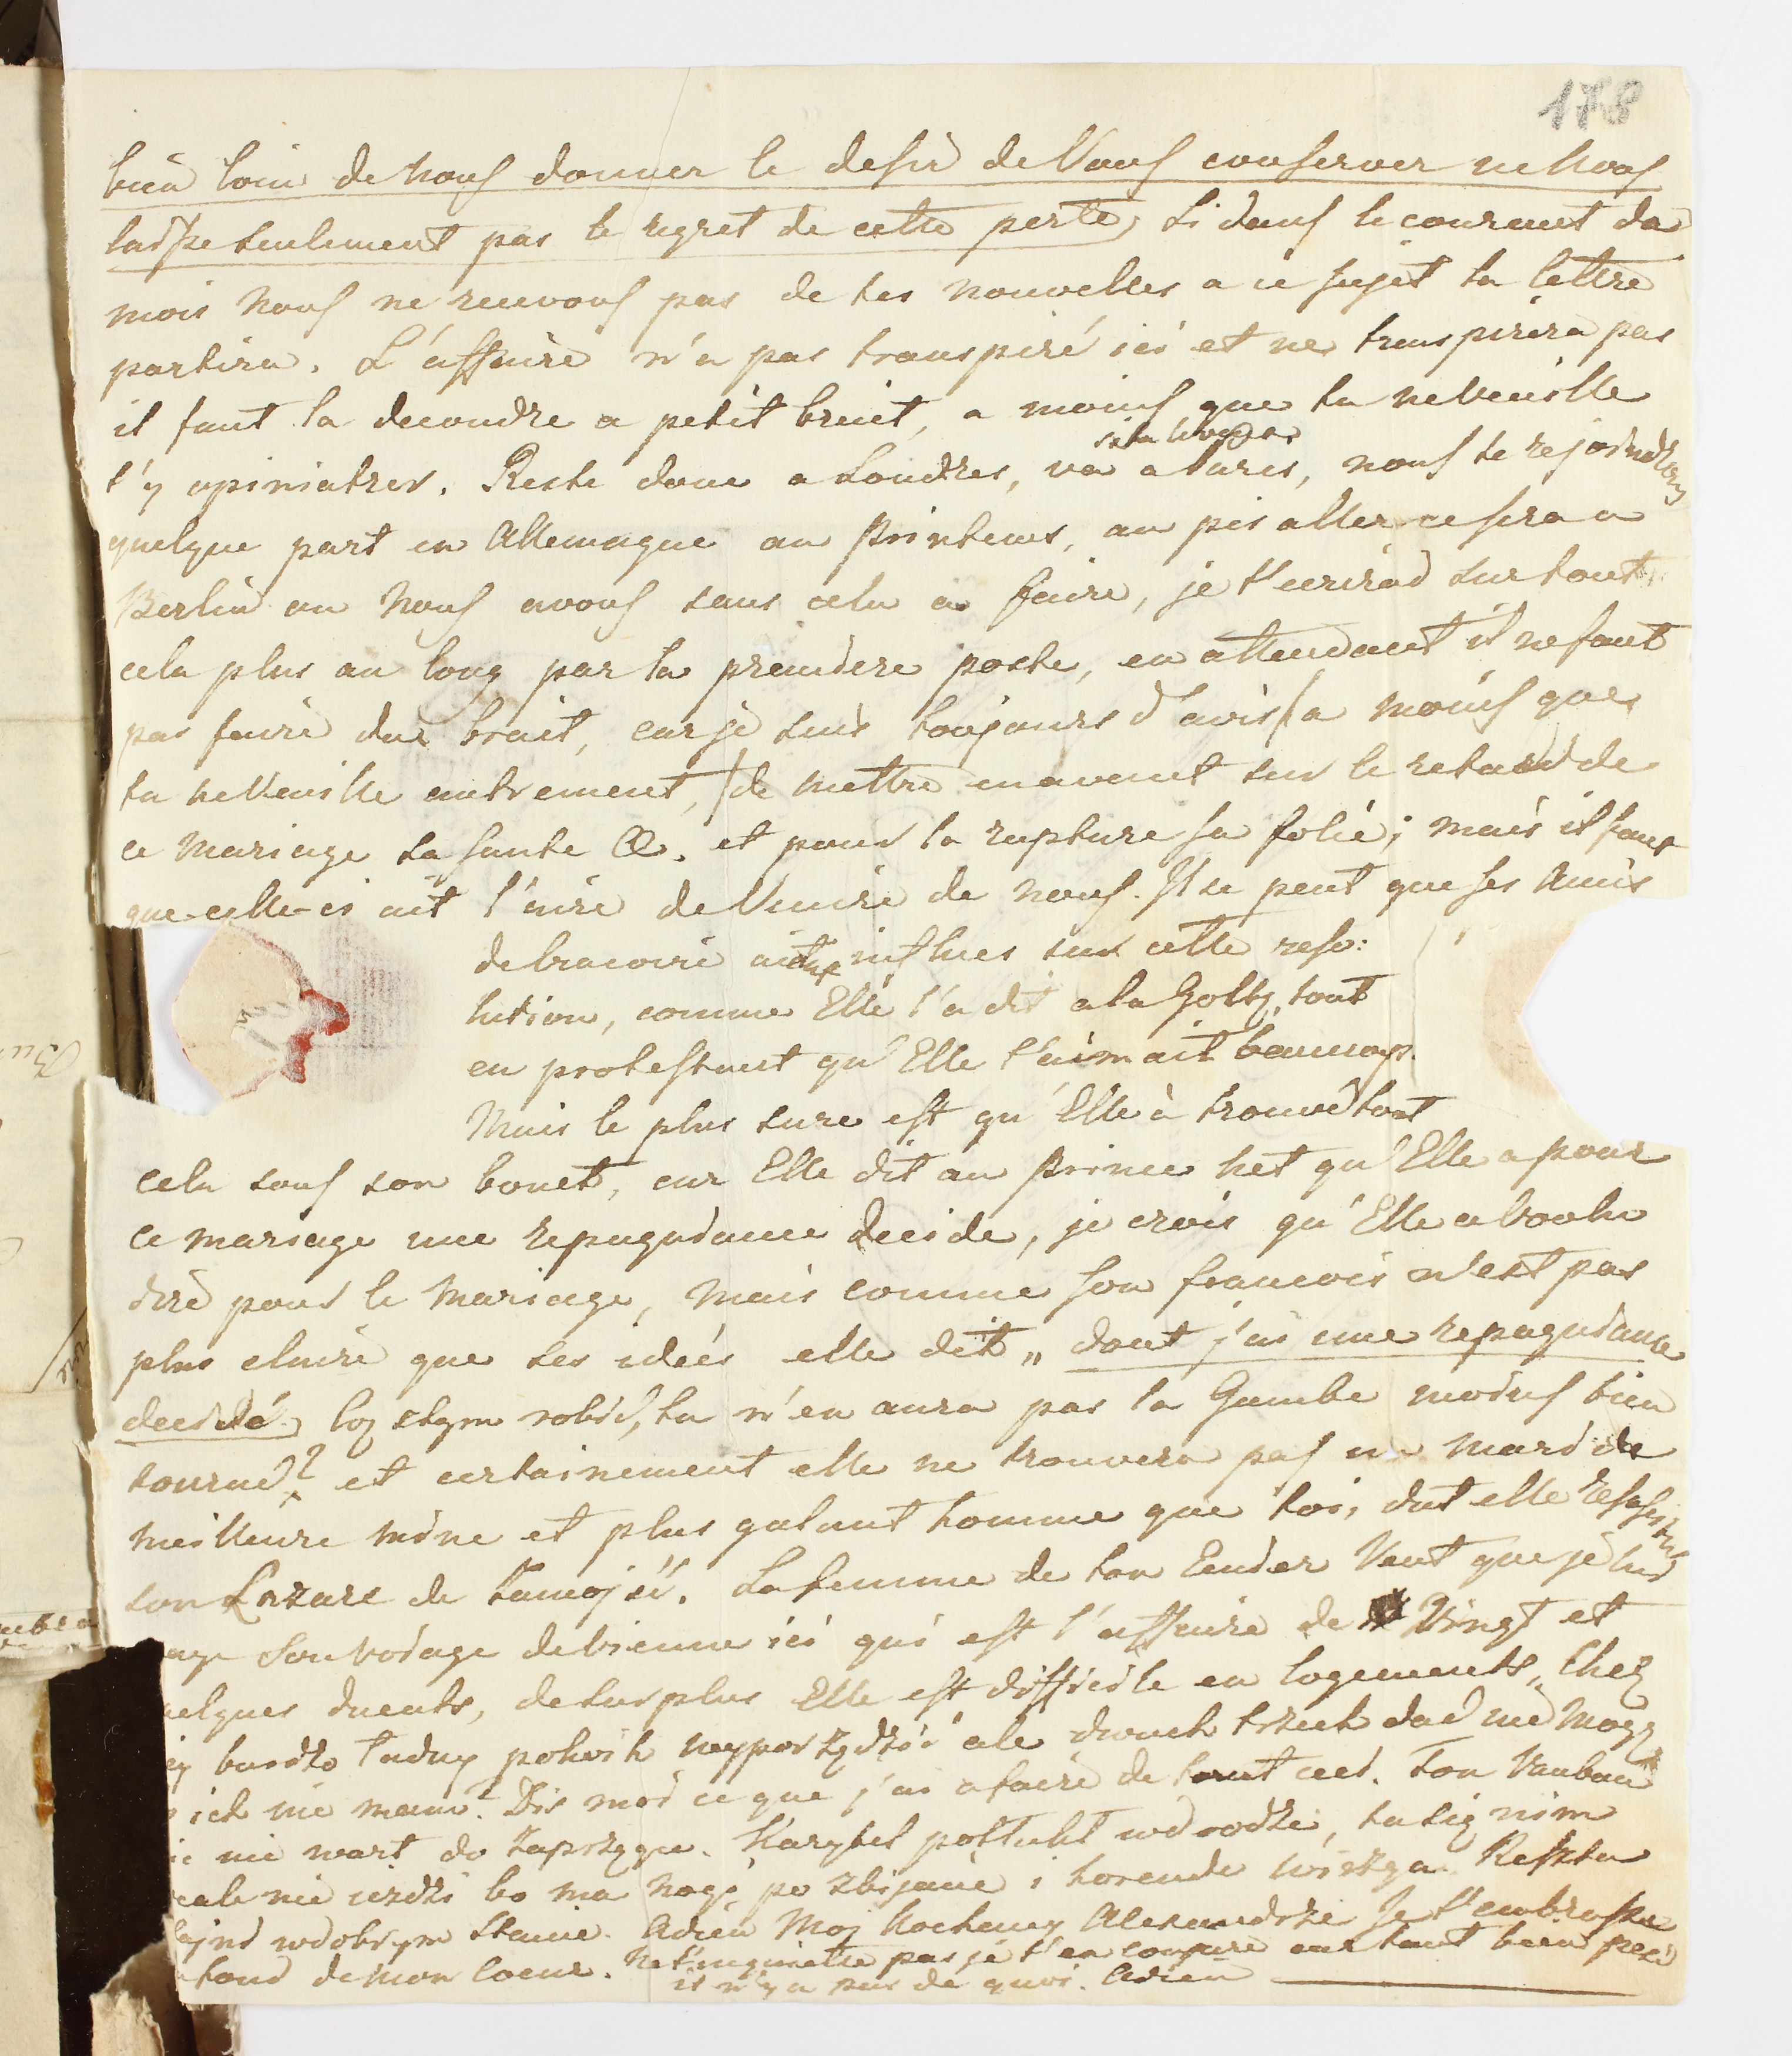 178
bien loin de nous donner le desir de Vous conserver ne Nous
laisse seulement pas le regret de cette perte, Si dans le courant du
mois Nous ne recevons pas de tes nouvelles a ce sujet ta lettre
partira. L'affaire n'a pas transpiré ici et ne transpirera pas
il faut la decoudre a petit bruit, a moins que tu ne Veuille
si tu l'
t'y opiniatrer. Reste donc a Londres, va a Paris, nous te rejoindrons
quelque part en Allemagne au Printems, au pis aller ce sera a
Berlin ou Nous avons sans cela a faire, je t'ecrirai sur tout
cela plus au long par la premiere poste, en attendant il ne faut
pas faire du bruit, car je suis toujours d'avis /a moins que
tu ne Veuille autrement, / de mettre en avant sur le retard de
ce Mariage sa sante &. et pour la rupture sa folie; mais il faut
que celle-ci ait l'aire de Venire de nous. Il se peut que ses Amis
de Cracovie aient influes sur cette reso:
lution, comme Elle l'a dit a la Goltz, tout
en protestant qu'Elle t'aimait beaucoup.
Mais le plus sure est qu'Elle à trouvé tout
cela sous son bonet, car Elle dit au Prince net qu'Elle a pour
ce mariage une repugnance decide, je crois qu'Elle a voulu
dire pour le Mariage, mais comme son francois n'est pas
plus claire que ses idées elle dit „ dont j'ai une repugnance
decidé, Coż z tym robić, tu n'en aura pas la Gambe moins bien
tourné? et certainement elle ne trouvera pas un Mari de
meilleure mine et plus galant homme que toi, dut elle
son Lazare de La femme de ton Veut que je lui
paye Son voiage de Vienne ici qui est l'affaire de Vingt et
quelques ducats, de surplus Elle est difficile en logements, Chcę
bardzo ładny pokoik wyporządzić ale dwuch trzech dać nie Mogę
bo ich nie mam? Dis moi ce que j'ai a faire de tout ceci. Ton Vauban
nie wart do Zaprzęgu. Karybel potłukł w drodze, ta się nim
wcale nie iezdzi bo ma nogi po zbijane i Reszta
w dobrym Stanie. Adieu Moj Kochany Alexandrze Je t'embrasse
fond de mon Coeur. Ne t'inquiette pas je t'en conjure car tout bien pesé
il n'y a pas de quoi. Adieu